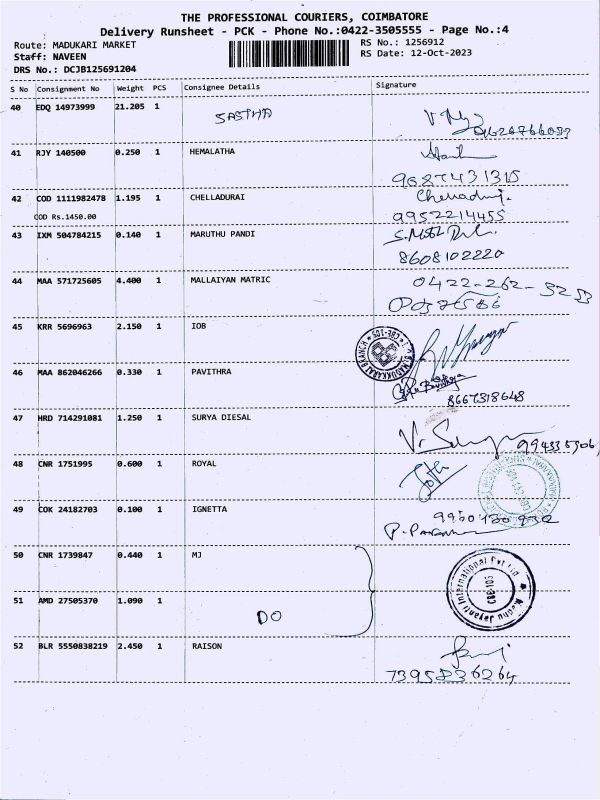 THE PROFESSIONAL COURIERS, COIMBATORE
Delivery Runsheet - PCK - Phone No.:0422-3505555 - Page No.:4
Route: MADUKARI MARKET
RS No.: 1256912
Staff: NAVEEN
RS Date: 12-Oct-2023
DRS No.: DCJB125691204
S No Consignment No Weight PCS Consignee Details Signature
40 EDQ 14973999 21.205 1 SASTHA
41 RJY 140500 0.250 1 HEMALATHA
9687431315
42 COD 1111982478 1.195 1 CHELLADURAI Chelladuraj.
COD Rs.1450.00 9952214455
43 IXM 504784215 0.140 1 MARUTHU PANDI
8608102220
44 MAA 571725605 4.400 1 MALLAIYAN MATRIC 0422-262-3253
45 KRR 5696963 2.150 1 IOB
46 MAA 862046266 0.330 1 PAVITHRA
8667318648
47 HRD 714291081 1.250 1 SURYA DIESAL
48 CNR 1751995 0.600 1 ROYAL
49 COK 24182703 0.100 1 IGNETTA
50 CNR 1739847 0.440 1 MJ
Madhu Jayanti International Pvt Ltd
CBE-105
51 AMD 27505370 1.090 1 DO
52 BLR 5550838219 2.450 1 RAISON
7395836264